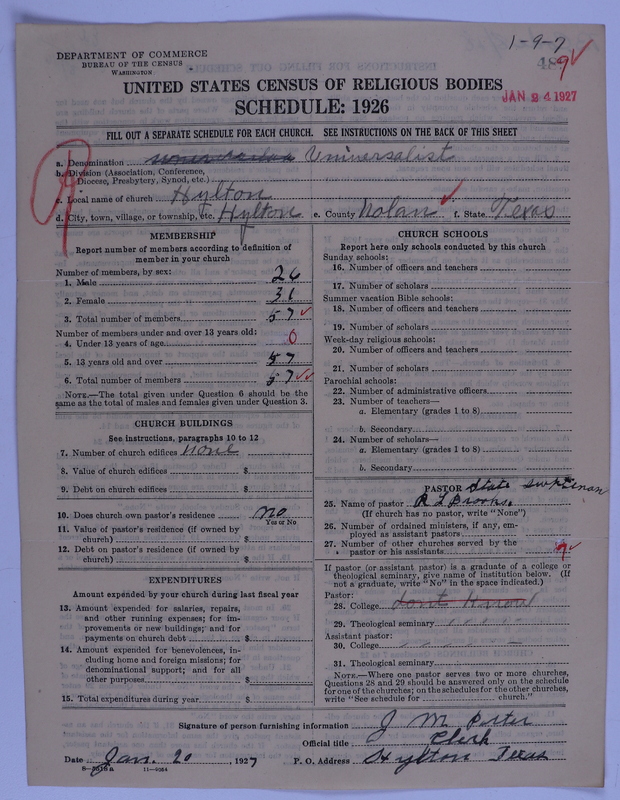 1-9-7
DEPARTMENT OF COMMERCE
BUREAU OF THE CENSUS
WASHINGTON
JAN 24 1927
UNITED STATES CENSUS OF RELIGIOUS BODIES
SCHEDULE: 1926
FILL OUT A SEPARATE SCHEDULE FOR EACH CHURCH. SEE INSTRUCTIONS ON THE BACK OF THIS SHEET
a. Denomination Universalist
b. Division (Association, Conference, Diocese, Presbytery, Synod, etc.)
c. Local name of church Hylton
d. City, town, village, or township, etc. Hylton e. County Nolan f. State Texas
MEMBERSHIP
Report number of members according to definition of member in your church
Number of members, by sex:
1. Male 26
2. Female 31
3. Total number of members 57
Number of members under and over 13 years old:
4. Under 13 years of age 0
5. 13 years old and over 57
6. Total number of members 57
NOTE.—The total given under Question 6 should be same as the total of males and females given under Question 3.
CHURCH BUILDINGS
See instructions, paragraphs 10 to 12
7. Number of church edifices None
8. Value of church edifices $
9. Debt on church edifices $
10. Does church own pastor's residence No
Yes or No
11. Value of pastor's residence (if owned by church) $
12. Debt on pastor's residence (if owned by church) $
EXPENDITURES
Amount expended by your church during last fiscal year
13. Amount expended for salaries, repairs, and other running expenses; for improvements or new buildings; and for payments on church debt $
14. Amount expended for benevolences, including home and foreign missions; for denominational support; and for all other purposes $
15. Total expenditures during year $
CHURCH SCHOOLS
Report here only schools conducted by this church
Sunday schools:
16. Number of officers and teachers
17. Number of scholars
Summer vacation Bible schools:
18. Number of officers and teachers
19. Number of scholars
Week-day religious schools:
20. Number of officers and teachers
21. Number of scholars
Parochial schools:
22. Number of administrative officers
23. Number of teachers—
a. Elementary (grades 1 to 8)
b. Secondary
24. Number of scholars—
a. Elementary (grades 1 to 8)
b. Secondary
PASTOR State
25. Name of pastor R L Brooks
(If church has no pastor, write "None")
26. Number of ordained ministers, if any, employed as assistant pastors
27. Number of other churches served by the pastor or his assistants
If pastor (or assistant pastor) is a graduate of a college or theological seminary, give name of institution below. (If not a graduate, write "No" in the space indicated.)
Pastor:
28. College
29. Theological seminary
Assistant pastor:
30. College
31. Theological seminary
NOTE.—Where one pastor serves two or more churches, Questions 28 and 29 should be answered only on the schedule for one of the churches; on the schedules for the other churches, write "See schedule for church."
Signature of person furnishing information J M Porter
Official title Clerk
Date Jan. 20, 1927 P. O. Address Hylton Texas